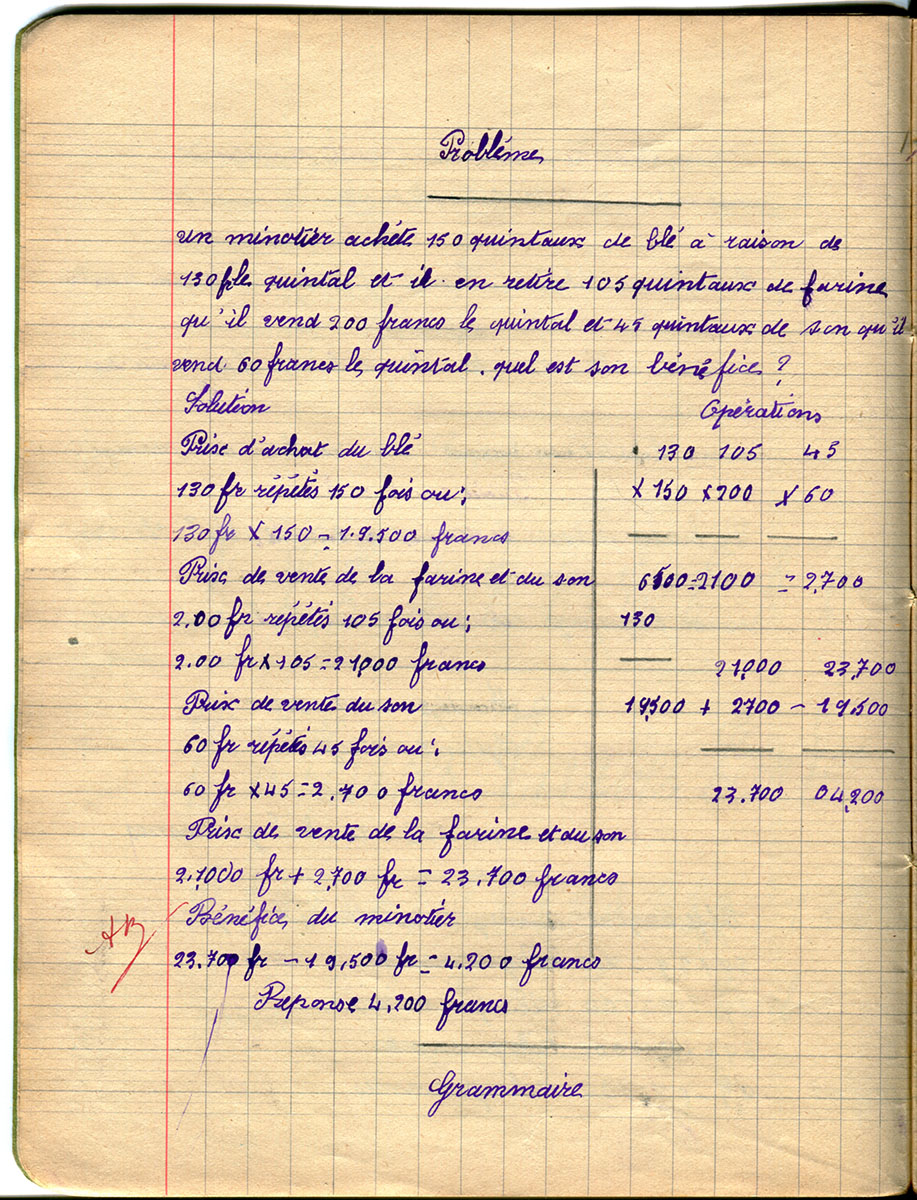 Problème
un minotier achète 150 quintaux de blé à raison de
130f le quintal et il en retire 105 quintaux de farine
qu'il vend 200 francs le quintal et 45 quintaux de son qu'il
vend 60 francs le quintal. quel est son bénéfice ?
Solution
Opérations
Prix d'achat du blé
130 105 45
130 fr répétés 150 fois ou :
x 150 x 200 x 60
130 fr x 150 = 19.500 francs
Prix de vente de la farine et du son
6500 = 2100 = 2.700
2.00 fr répétés 105 fois ou :
130
2.00 fr x 105 = 21,000 francs
21,000 23,700
Prix de vente du son
19,500 + 2700 - 19.500
60 fr répétés 45 fois ou :
60 fr x 45 = 2.700 francs
23.700 04,200
Prix de vente de la farine et du son
2.1000 fr + 2,700 fr = 23.700 francs
Bénéfice du minotier
AB
23.700 fr - 19,500 fr = 4.200 francs
Reponse 4,200 francs
Grammaire